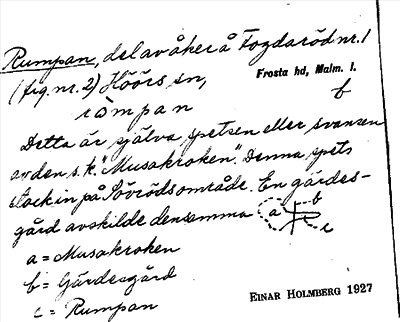 Rumpan, del av åker å Fogdaröd nr. 1
(fig. nr. 2) Höörs sn,
Frosta hd, Malm. l.
b
rómpan
Detta är själva spetsen eller svansen
av den s.k. "Musakroken". Denna spets
stack in på Sörröds område. En gärdes-
gård avskilde densamma
a b c
a = Musakroken
b = Gärdesgård
c = Rumpan
EINAR HOLMBERG 1927